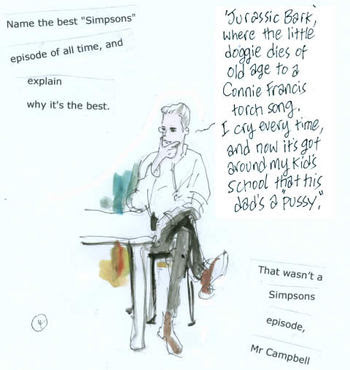 Name the best "Simpsons"
episode of all time, and
explain
why it's the best.
'Jurassic Bark',
where the little
doggie dies of
old age to a
Connie Francis
torch song.
I cry every time,
and now it's got
around my kid's
school that his
dad's a "pussy."
That wasn't a
Simpsons
episode,
Mr Campbell
4